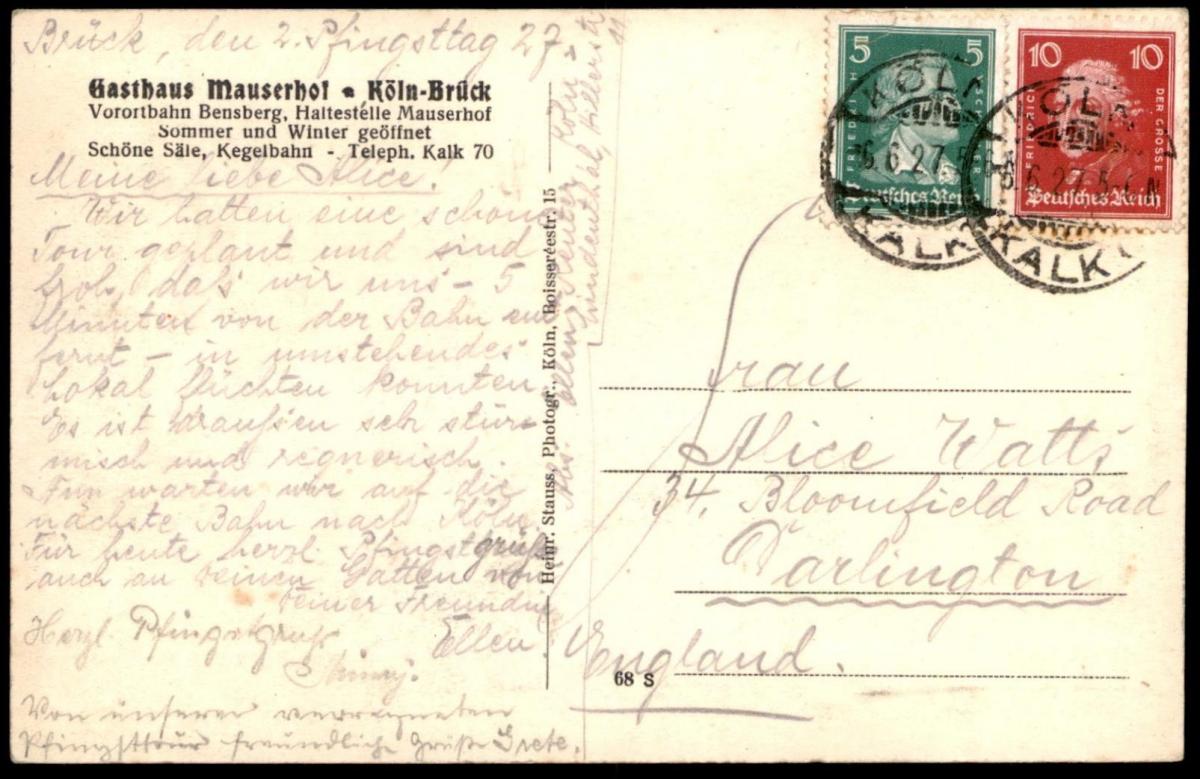 Brück, den 2. Pfingsttag 27.
Gasthaus Mauserhof • Köln-Brück
Vorortbahn Bensberg, Haltestelle Mauserhof
Sommer und Winter geöffnet
Schöne Säle, Kegelbahn - Teleph. Kalk 70
Meine liebe Alice!
Wir hatten eine schöne
Tour geplant und sind
froh, daß wir uns – 5
Minuten von der Bahn ent
fernt – in umstehendes
Lokal flüchten konnten.
Es ist draußen sehr stür-
misch und regnerisch.
Nun warten wir auf die
nächste Bahn nach Köln.
Für heute herzl. Pfingstgrüße
auch an deinen Gatten von
deiner Freundin
Ellen.
Herzl. Pfingstgruß
Von unserer verregneten
Pfingsttour freundliche Grüße Grete.
Heinr. Stauss, Photogr., Köln, Boissereestr. 15
Abs. Ellen Köln-
Lindenthal,
68 S
5 5
FRIEDRICH
Deutsches Reich
10 10
FRIEDRICH DER GROSSE
Deutsches Reich
KÖLN
6.6.27.5-6N
KALK
KÖLN
6.6.27.5-6N
KALK
Frau
Alice Watts
34. Bloomfield Road
Darlington
England.